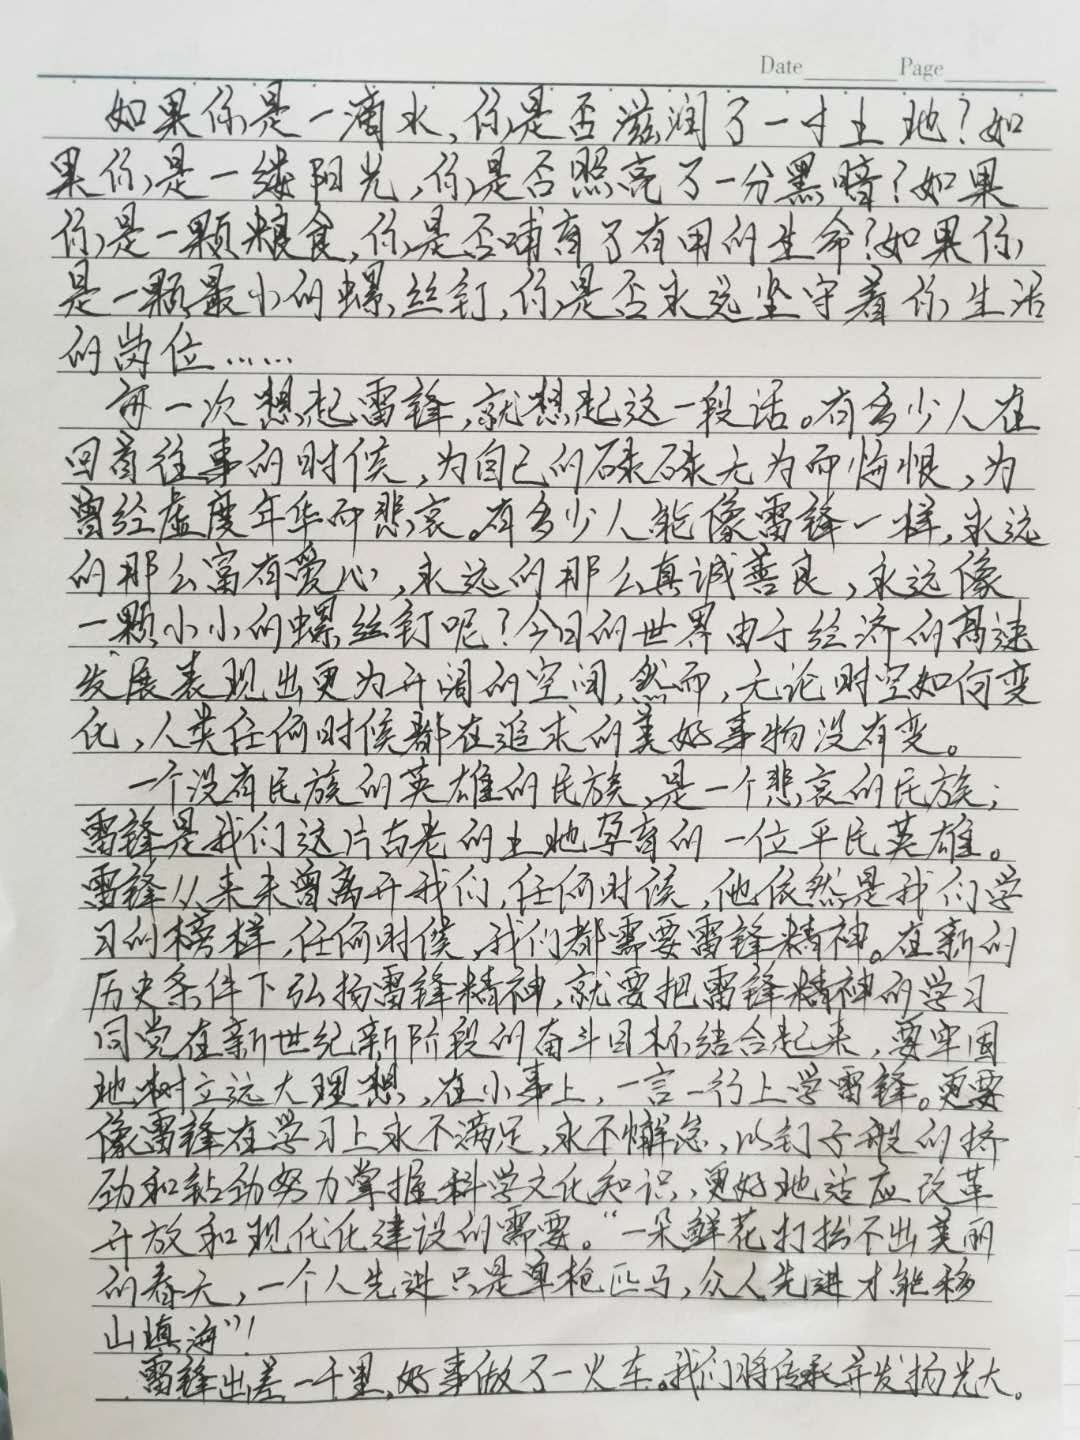 Date Page
如果你是一滴水,你是否滋润了一寸土地?如
果你是一缕阳光,你是否照亮了一分黑暗?如果
你是一颗粮食,你是否哺育了有用的生命?如果你
是一颗最小的螺丝钉,你是否永远坚守着你生活
的岗位……
每一次想起雷锋,就想起这一段话。有多少人在
回首往事的时候,为自己的碌碌无为而悔恨,为
曾经虚度年华而悲哀。有多少人能像雷锋一样,永远
的那么富有爱心,永远的那么真诚善良,永远像
一颗小小的螺丝钉呢?今日的世界由于经济的高速
发展表现出更为开阔的空间,然而,无论时空如何变
化,人类任何时候都在追求的美好事物没有变。
一个没有民族的英雄的民族,是一个悲哀的民族;
雷锋是我们这片古老的土地孕育的一位平民英雄。
雷锋从来未曾离开我们,任何时候,他依然是我们学
习的榜样,任何时候,我们都需要雷锋精神。在新的
历史条件下弘扬雷锋精神,就要把雷锋精神的学习
同党在新世纪新阶段的奋斗目标结合起来,要牢固
地树立远大理想,在小事上,一言一行上学雷锋。更要
像雷锋在学习上永不满足,永不懈怠,以钉子般的挤
劲和钻劲努力掌握科学文化知识,更好地适应改革
开放和现代化建设的需要。“一朵鲜花打扮不出美丽
的春天,一个人先进只是单枪匹马,众人先进才能移
山填海”!
雷锋出差一千里,好事做了一火车。我们将传承并发扬光大。